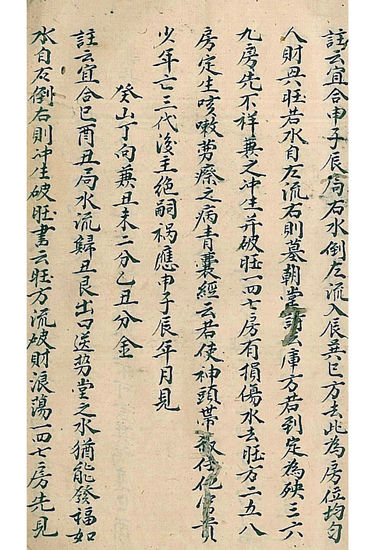 註云宜合申子辰局右水倒左流入辰巽巳方去此為房位均勻
人財與旺若水自左流右則墓朝堂訣云庫方若到定為殃三六
九房先不祥兼之冲生并破旺一四七房有損傷水去旺方二五八
房定生咳嗽勞瘵之病青囊經云若使神頭帶殺任他富貴
少年亡三代後主絕嗣禍應申子辰年月見
癸山丁向兼丑未二分乙丑分金
註云宜合巳酉丑局水流歸丑艮出口送勢堂之水猶能發福如
水自左倒右則冲生破旺書云旺方流破財浪蕩一四七房先見